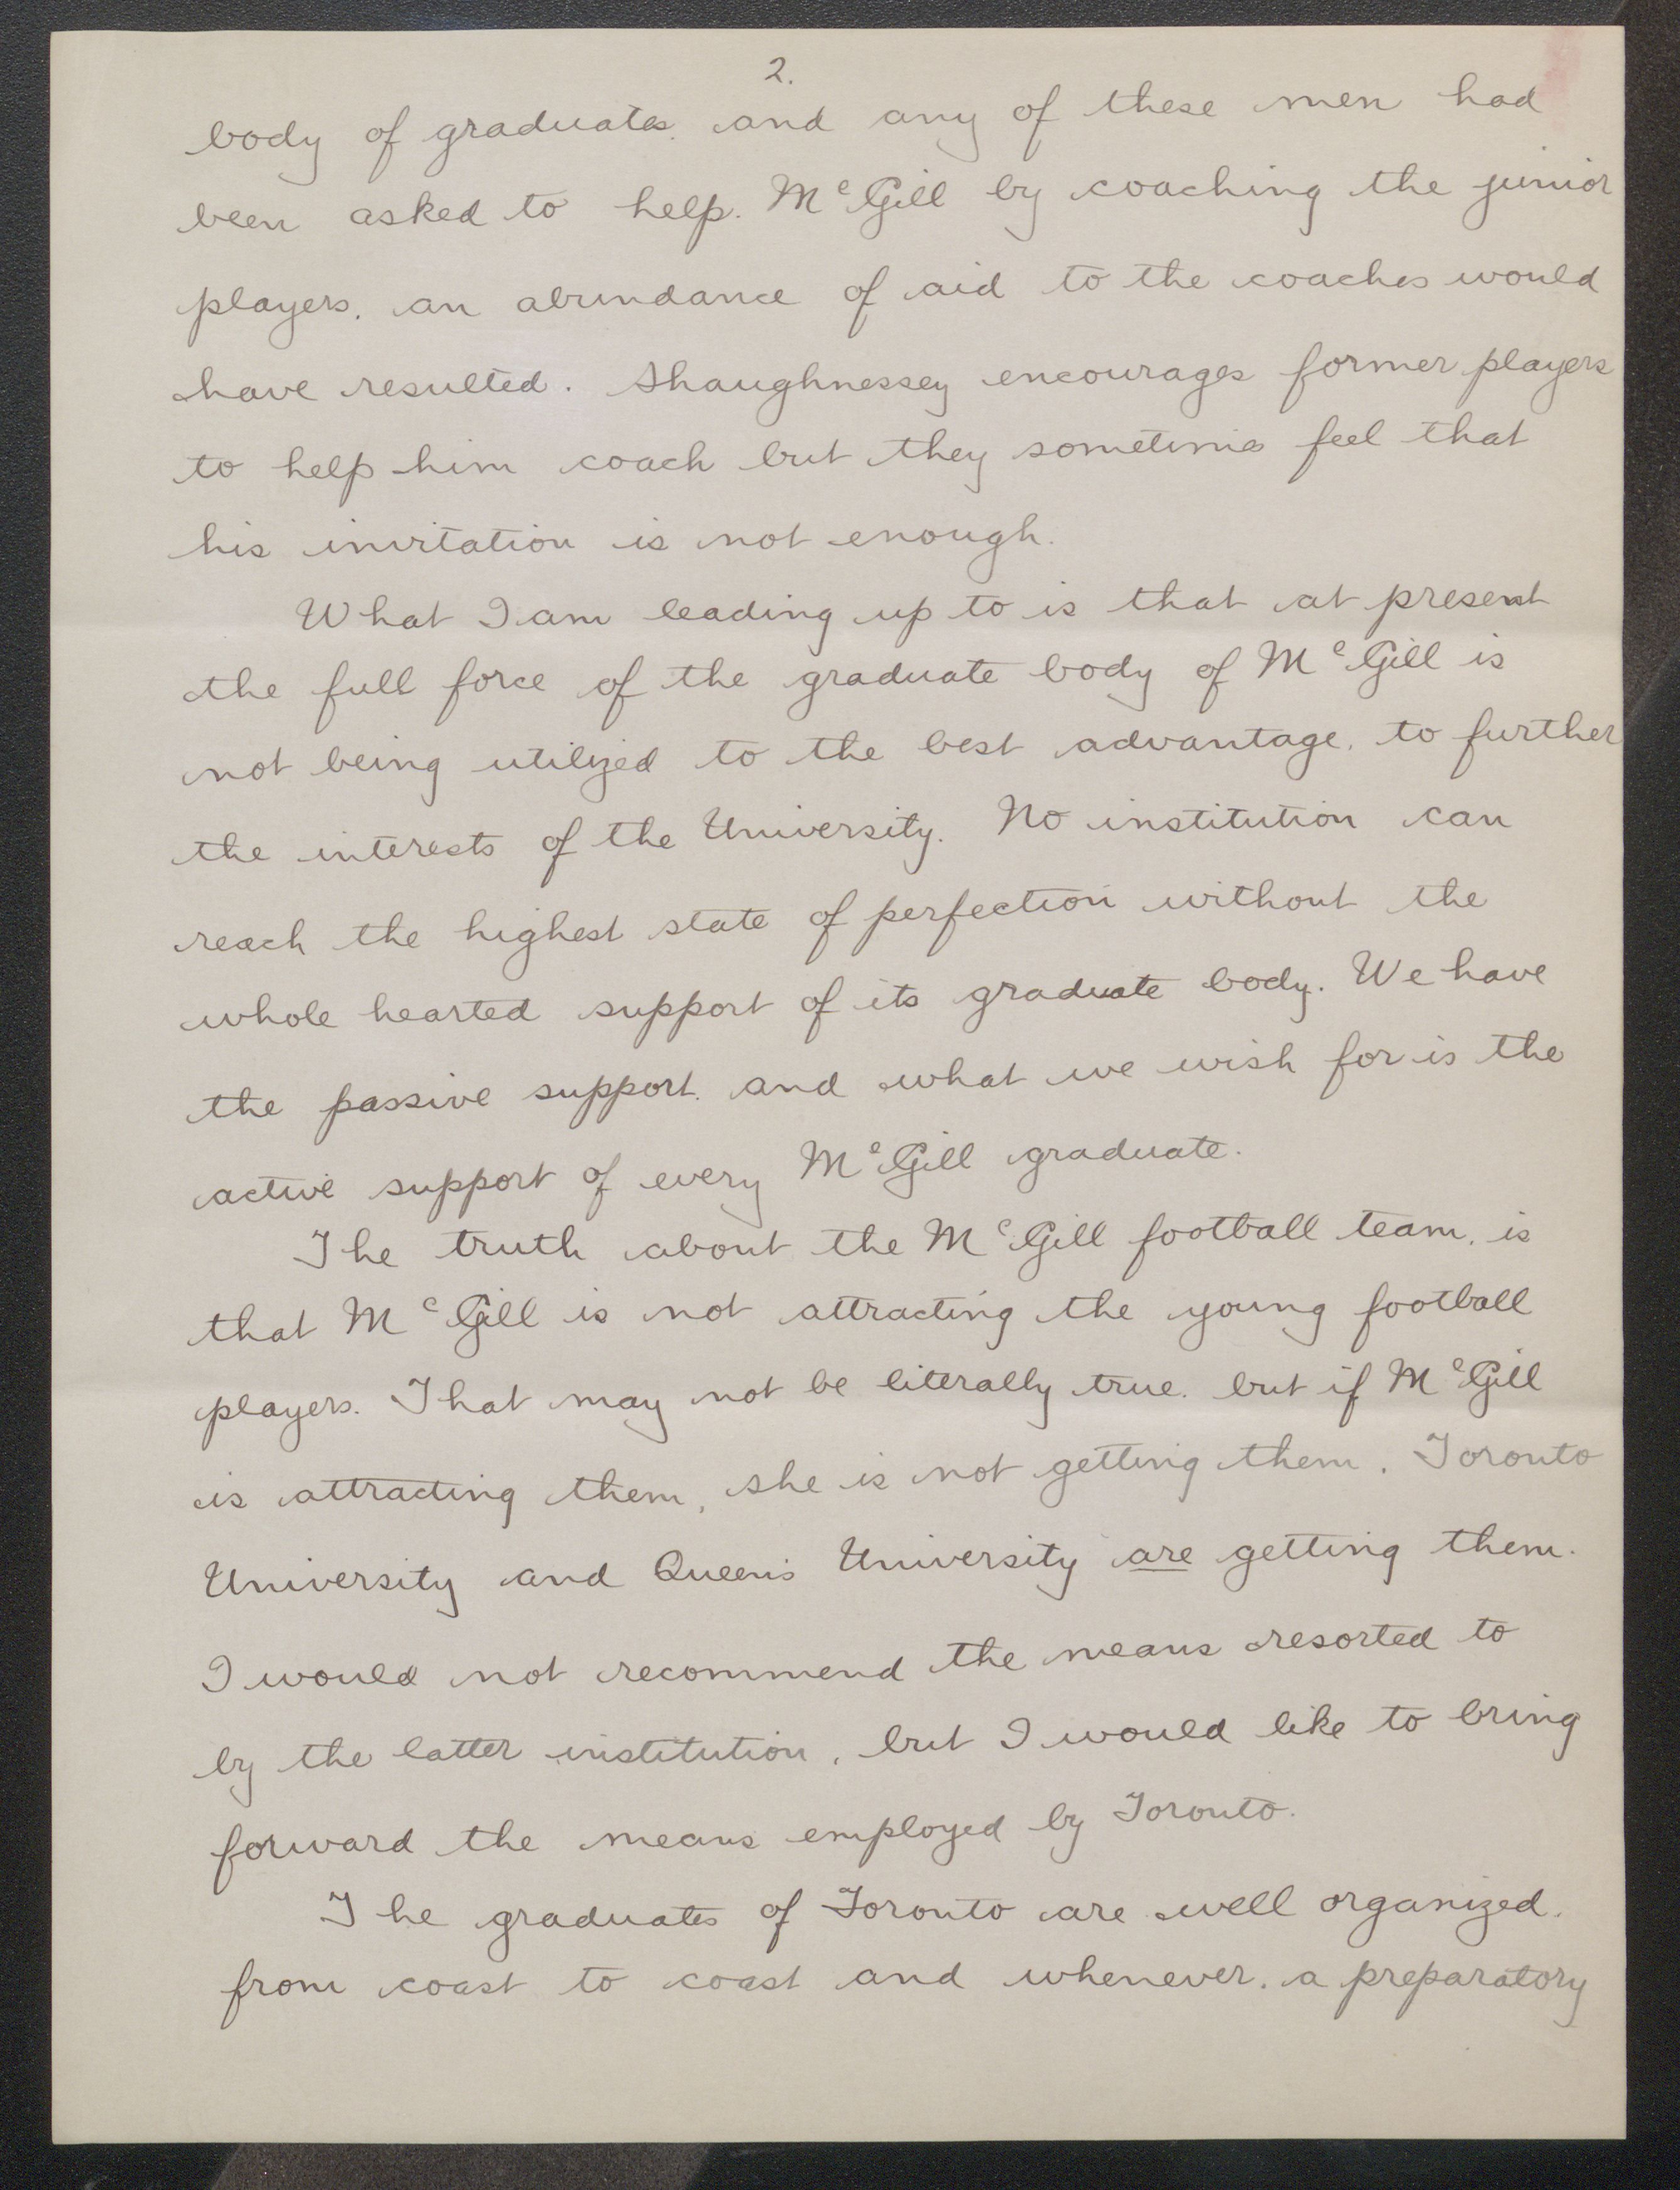 2.
body of graduates. and any of these men had
been asked to help. McGill by coaching the junior
players, an abundance of aid to the coaches would
have resulted. Shaughnessey encourages former players
to help him coach but they sometimes feel that
his invitation is not enough.
What I am leading up to is that at present
the full force of the graduate body of McGill is
not being utilized to the best advantage, to further
the interests of the University. No institution can
reach the highest state of perfection without the
whole hearted support of its graduate body. We have
the passive support. and what we wish for is the
active support of every McGill graduate.
The truth about the McGill football team, is
that McGill is not attracting the young football
players. That may not be literally true. but if McGill
is attracting them, she is not getting them. Toronto
University and Queen's University are getting them.
I would not recommend the means resorted to
by the latter institution, but I would like to bring
forward the means employed by Toronto.
The graduates of Toronto are well organized.
from coast to coast and whenever. a preparatory